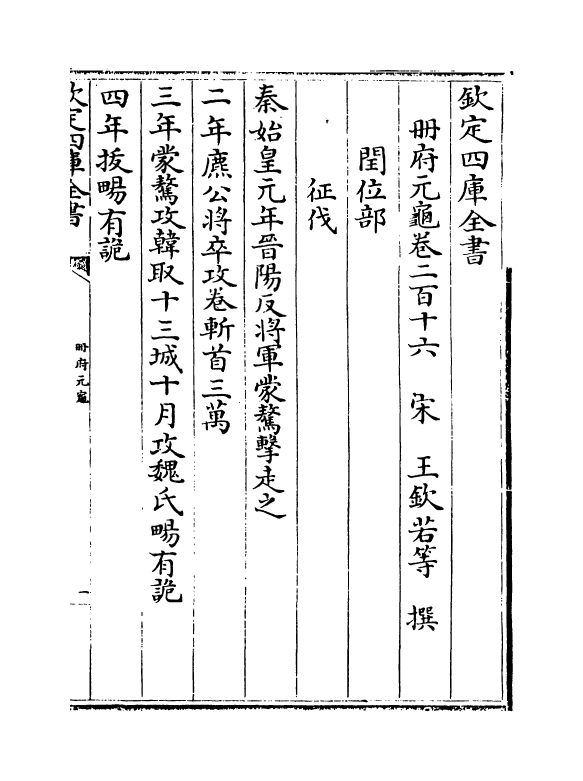 欽定四庫全書
冊府元龜卷二百十六 宋 王欽若等 撰
閏位部
征伐
秦始皇元年晉陽反將軍蒙驁擊走之
二年麃公將卒攻卷斬首三萬
三年蒙驁攻韓取十三城十月攻魏氏暢有詭
四年拔暢有詭
欽定四庫全書
冊府元龜
一